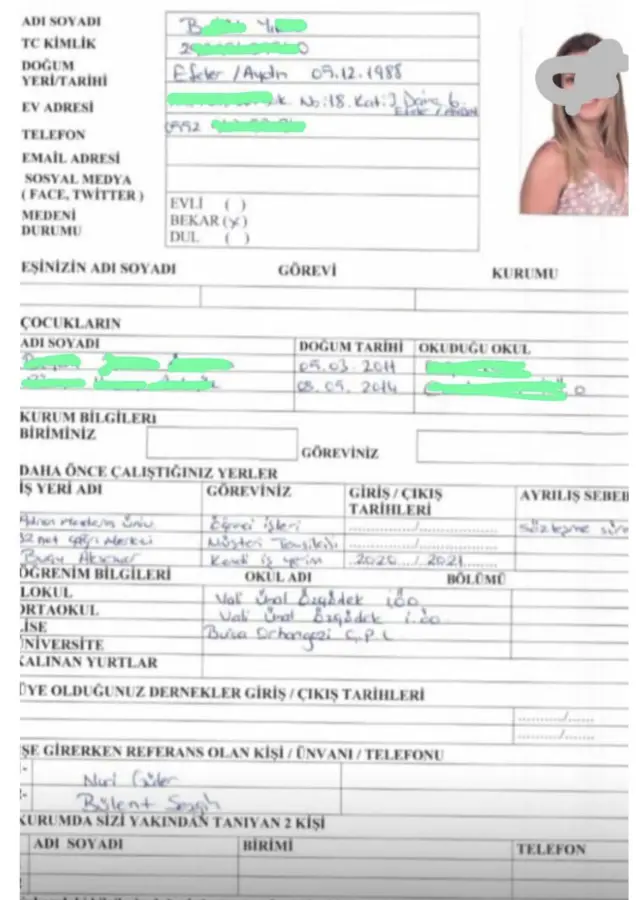 ADI SOYADI
TC KİMLİK
DOĞUM
YERİ/TARİHİ
Efeler / Aydın 09.12.1988
EV ADRESİ
No:18. Kat:3 Daire 6.
Efeler / AYDIN
TELEFON
EMAİL ADRESİ
SOSYAL MEDYA
( FACE, TWİTTER )
MEDENİ
DURUMU
EVLİ ( )
BEKAR (x)
DUL ( )
EŞİNİZİN ADI SOYADI GÖREVİ KURUMU
ÇOCUKLARIN
ADI SOYADI DOĞUM TARİHİ OKUDUĞU OKUL
05.03.2011
08.05.2014
KURUM BİLGİLERİ
BİRİMİNİZ
GÖREVİNİZ
DAHA ÖNCE ÇALIŞTIĞINIZ YERLER
İŞ YERİ ADI GÖREVİNİZ GİRİŞ / ÇIKIŞ TARİHLERİ AYRILIŞ SEBEB
Adnan Menderes Üniv. Öğrenci işleri ............/............ Sözleşme süre
Müşteri Temsilcisi ............/............
Kendi iş yerim ..2020.../ 2021.......
ÖĞRENİM BİLGİLERİ OKUL ADI BÖLÜMÜ
LOKUL Vali Ünal Özgödek İÖO
ORTAOKUL Vali Ünal Özgödek İ.ÖO
LİSE Bursa Orhangazi Ç.P.L
ÜNİVERSİTE
KALINAN YURTLAR
ÜYE OLDUĞUNUZ DERNEKLER GİRİŞ / ÇIKIŞ TARİHLERİ
............/......
............/......
ŞE GİRERKEN REFERANS OLAN KİŞİ / ÜNVANI / TELEFONU
Nuri Güler
Bülent Sezgin
KURUMDA SİZİ YAKINDAN TANIYAN 2 KİŞİ
ADI SOYADI BİRİMİ TELEFON